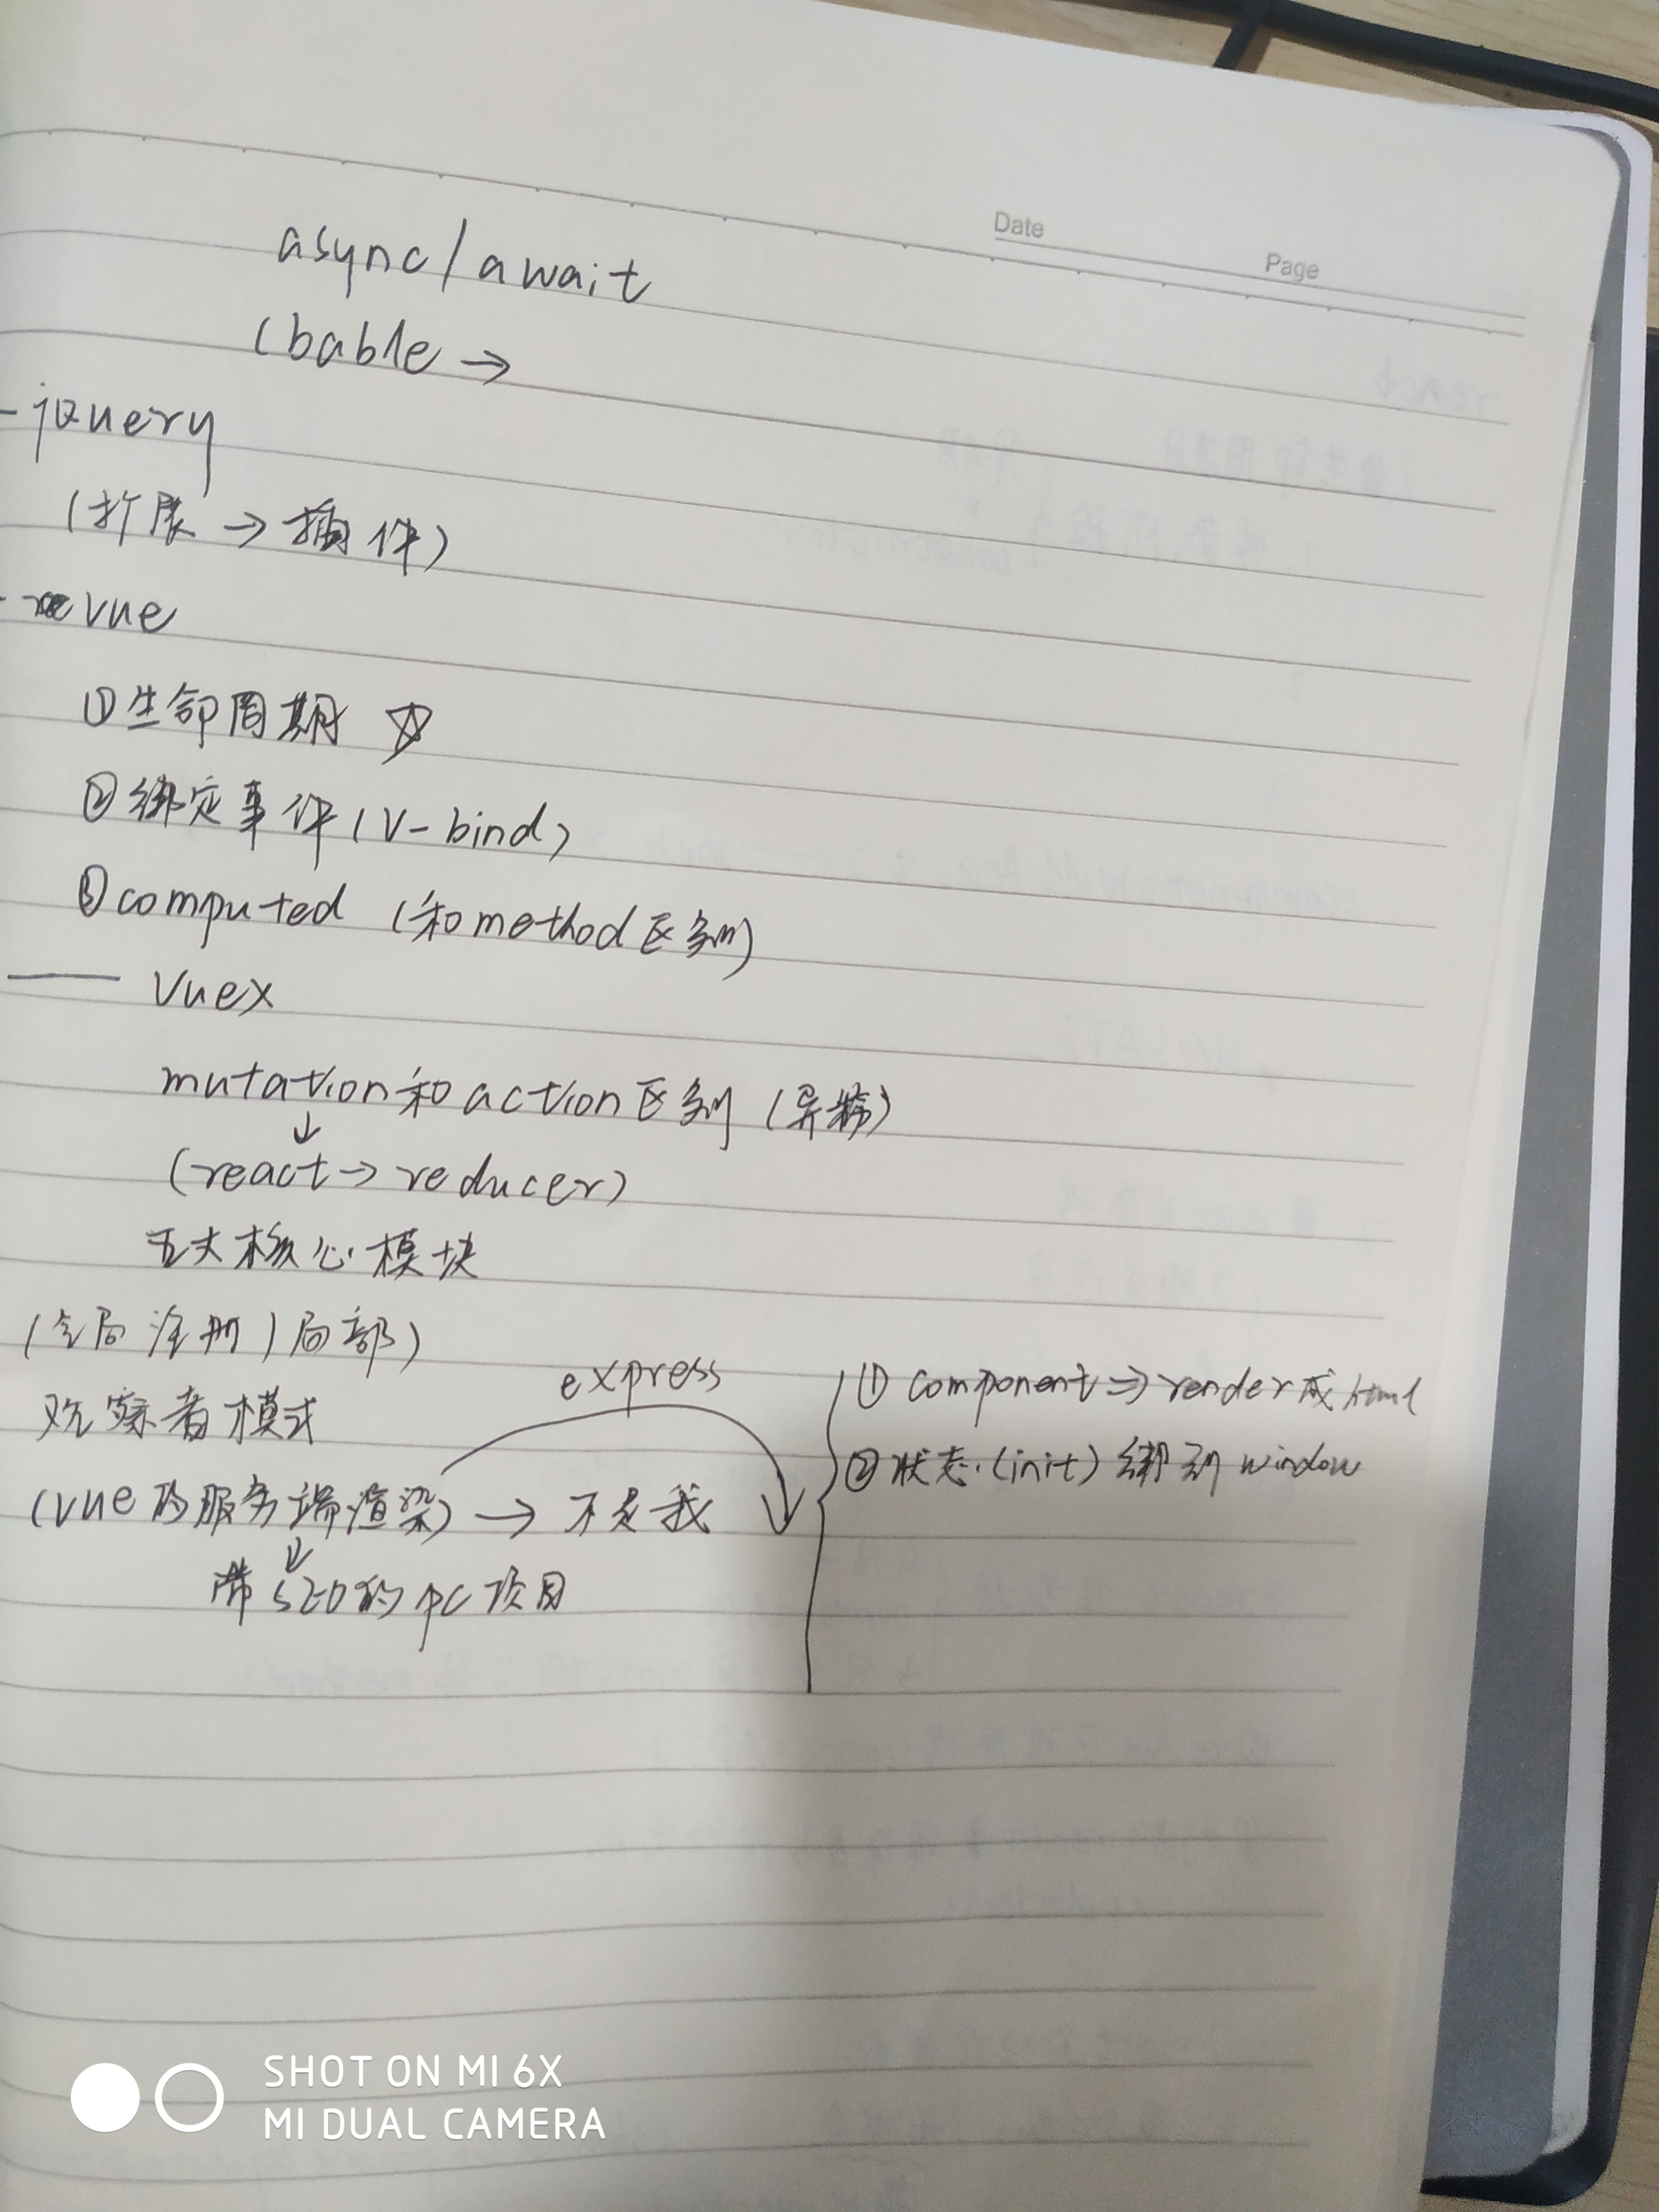 Date
Page
async/await
(bable →
- jquery
(扩展 → 插件)
- vue
①生命周期 ☆
②绑定事件(v-bind)
③computed (和method区别)
—— Vuex
mutation和action区别 (异步)
↓
(react → reducer)
五大核心模块
(全局注册)局部)
观察者模式
express
(vue的服务端渲染) → 不是我
↓
带SEO的PC项目
① component => render成html
②状态(init) 绑到 window
SHOT ON MI 6X
MI DUAL CAMERA